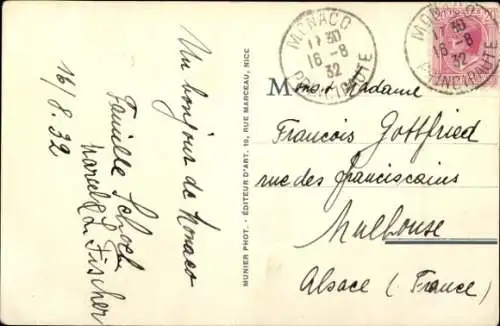 Un bonjour de Monaco
Famille Schoel
Marcel & L. Fischer
16/8.32
MUNIER PHOT. - ÉDITEUR D'ART. 10, RUE MARCEAU, NICE
MONACO
17 30
16 -8
32
PRINCIPAUTÉ
MONACO
17 30
16 -8
32
PRINCIPAUTÉ
Mons. et Madame
Francois Gottfried
rue des franciscains
Mulhouse
Alsace (France)